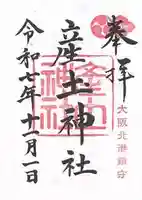 奉拝
大阪北港鎮守
産土神社
令和七年十一月一日